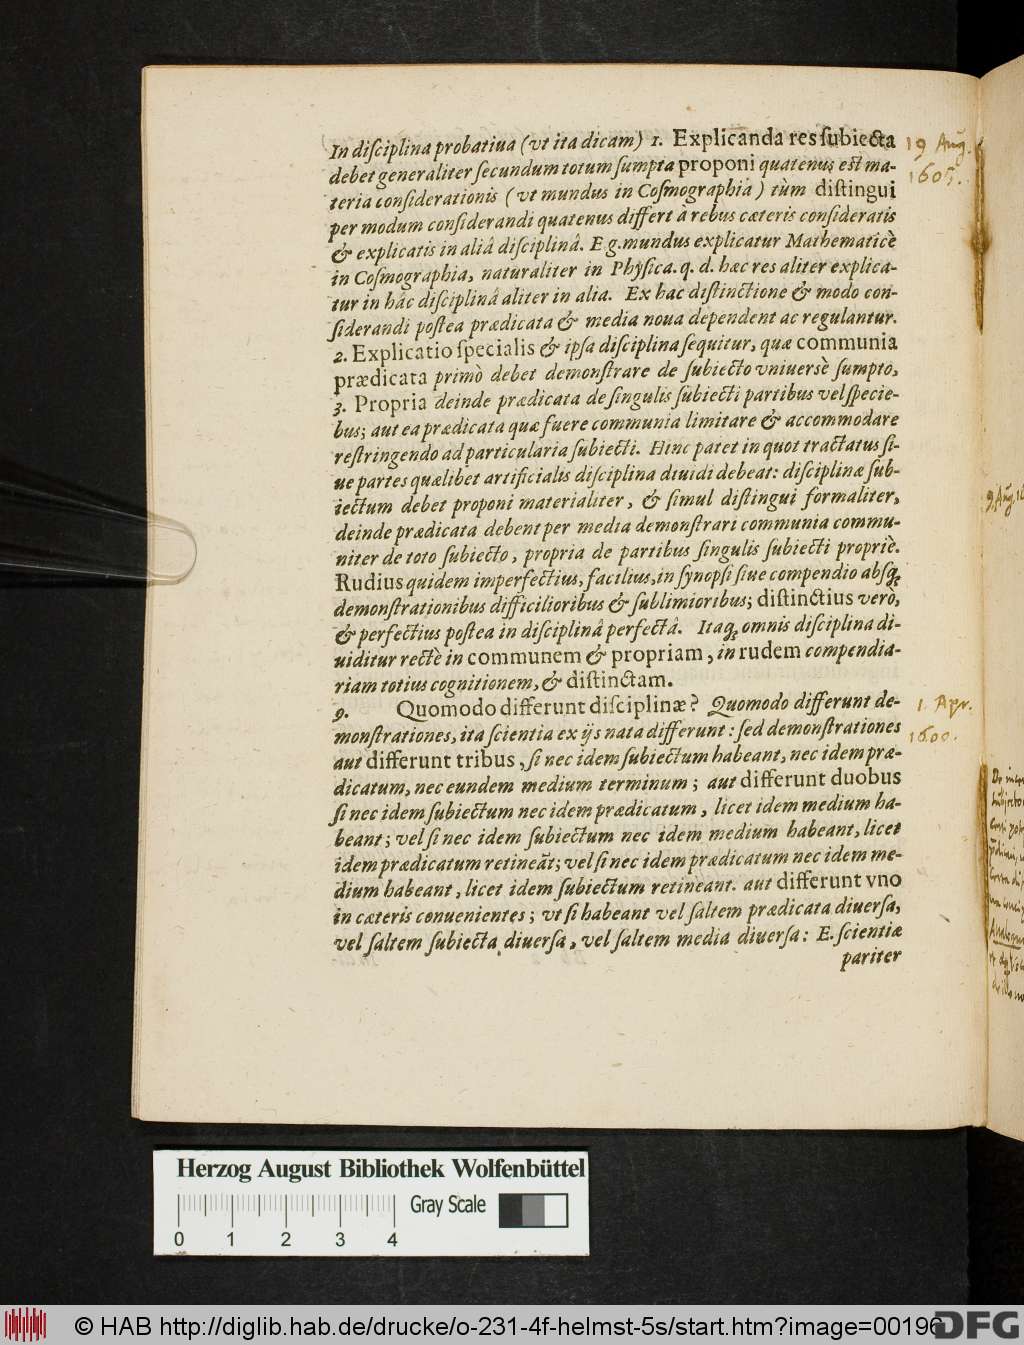 In diſciplina probatiua (vt ita dicam) 1. Explicanda res ſubiecta
debet generaliter ſecundum totum ſumpta proponi quatenus est ma-
teria conſiderationis (vt mundus in Coſmographiâ) tùm diſtingui
per modum conſiderandi quatenus differt à rebus cæteris conſideratis
& explicatis in aliâ diſciplinâ. E g. mundus explicatur Mathematicè
in Coſmographia, naturaliter in Phyſica. q. d. hæc res aliter explica-
tur in hâc diſciplinâ aliter in alia. Ex hac diſtinctione & modo con-
ſiderandi poſtea prædicata & media noua dependent ac regulantur.
2. Explicatio ſpecialis & ipſa diſciplina ſequitur, quæ communia
prædicata primò debet demonſtrare de ſubiecto vniuersè ſumpto,
3. Propria deinde prædicata de ſingulis ſubiecti partibus vel ſpecie-
bus; aut ea prædicata quæ fuere communia limitare & accommodare
reſtringendo ad particularia ſubiecti. Hinc patet in quot tractatus ſi-
ue partes quælibet artificialis diſciplina diuidi debeat: diſciplinæ ſub-
iectum debet proponi materialiter, & ſimul diſtingui formaliter,
deinde prædicata debent per media demonſtrari communia commu-
niter de toto ſubiecto, propria de partibus ſingulis ſubiecti propriè.
Rudius quidem imperfectius, facilius, in ſynopſi ſiue compendio abſq;
demonſtrationibus difficilioribus & ſublimioribus; diſtinctius verò,
& perfectius poſtea in diſciplinâ perfectâ. Itaq; omnis diſciplina di-
uiditur rectè in communem & propriam, in rudem compendia-
riam totius cognitionem, & diſtinctam.
9. Quomodo differunt diſciplinæ? Quomodo differunt de-
monſtrationes, ita ſcientia ex ijs nata differunt: ſed demonſtrationes
aut differunt tribus, ſi nec idem ſubiectum habeant, nec idem præ-
dicatum, nec eundem medium terminum; aut differunt duobus
ſi nec idem ſubiectum nec idem prædicatum, licet idem medium ha-
beant; vel ſi nec idem ſubiectum nec idem medium habeant, licet
idem prædicatum retineāt; vel ſi nec idem prædicatum nec idem me-
dium habeant, licet idem ſubiectum retineant. aut differunt vno
in cæteris conuenientes; vt ſi habeant vel ſaltem prædicata diuerſa,
vel ſaltem ſubiecta diuerſa, vel ſaltem media diuerſa: E. ſcientiæ
pariter
19 Aug.
1605.
1. Apr.
1600.
9. Aug.
Herzog August Bibliothek Wolfenbüttel
Gray Scale
0 1 2 3 4
© HAB http://diglib.hab.de/drucke/o-231-4f-helmst-5s/start.htm?image=00196
DFG